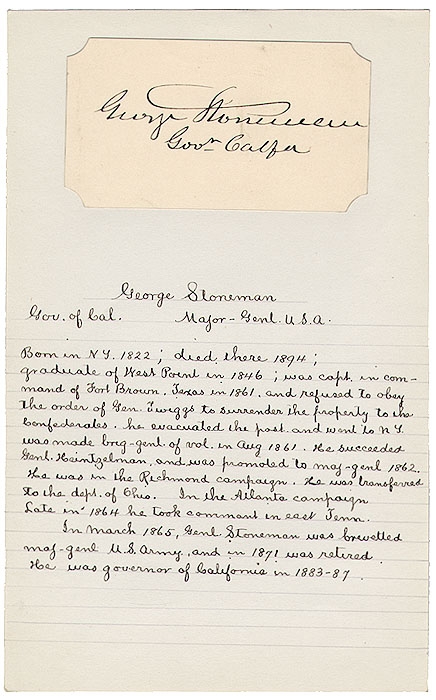 George Stoneman
Govr Calfa
George Stoneman
Gov. of Cal. Major-Genl. U.S.A.
Born in N.Y. 1822; died there 1894;
graduate of West Point in 1846; was capt. in com-
mand of Fort Brown, Texas in 1861. and refused to obey
the order of Gen. Twiggs to surrender the property to the
Confederates. he evacuated the post and went to N.Y.
was made brig-genl. of vol. in Aug 1861. He succeeded
Genl. Heintzelman, and was promoted to maj-genl 1862.
He was in the Richmond campaign. He was transferred
to the dept. of Ohio. In the Atlanta campaign
Late in 1864 he took command in east Tenn.
In March 1865, Genl Stoneman was brevetted
maj-genl U.S. Army, and in 1871 was retired.
He was governor of California in 1883-87.